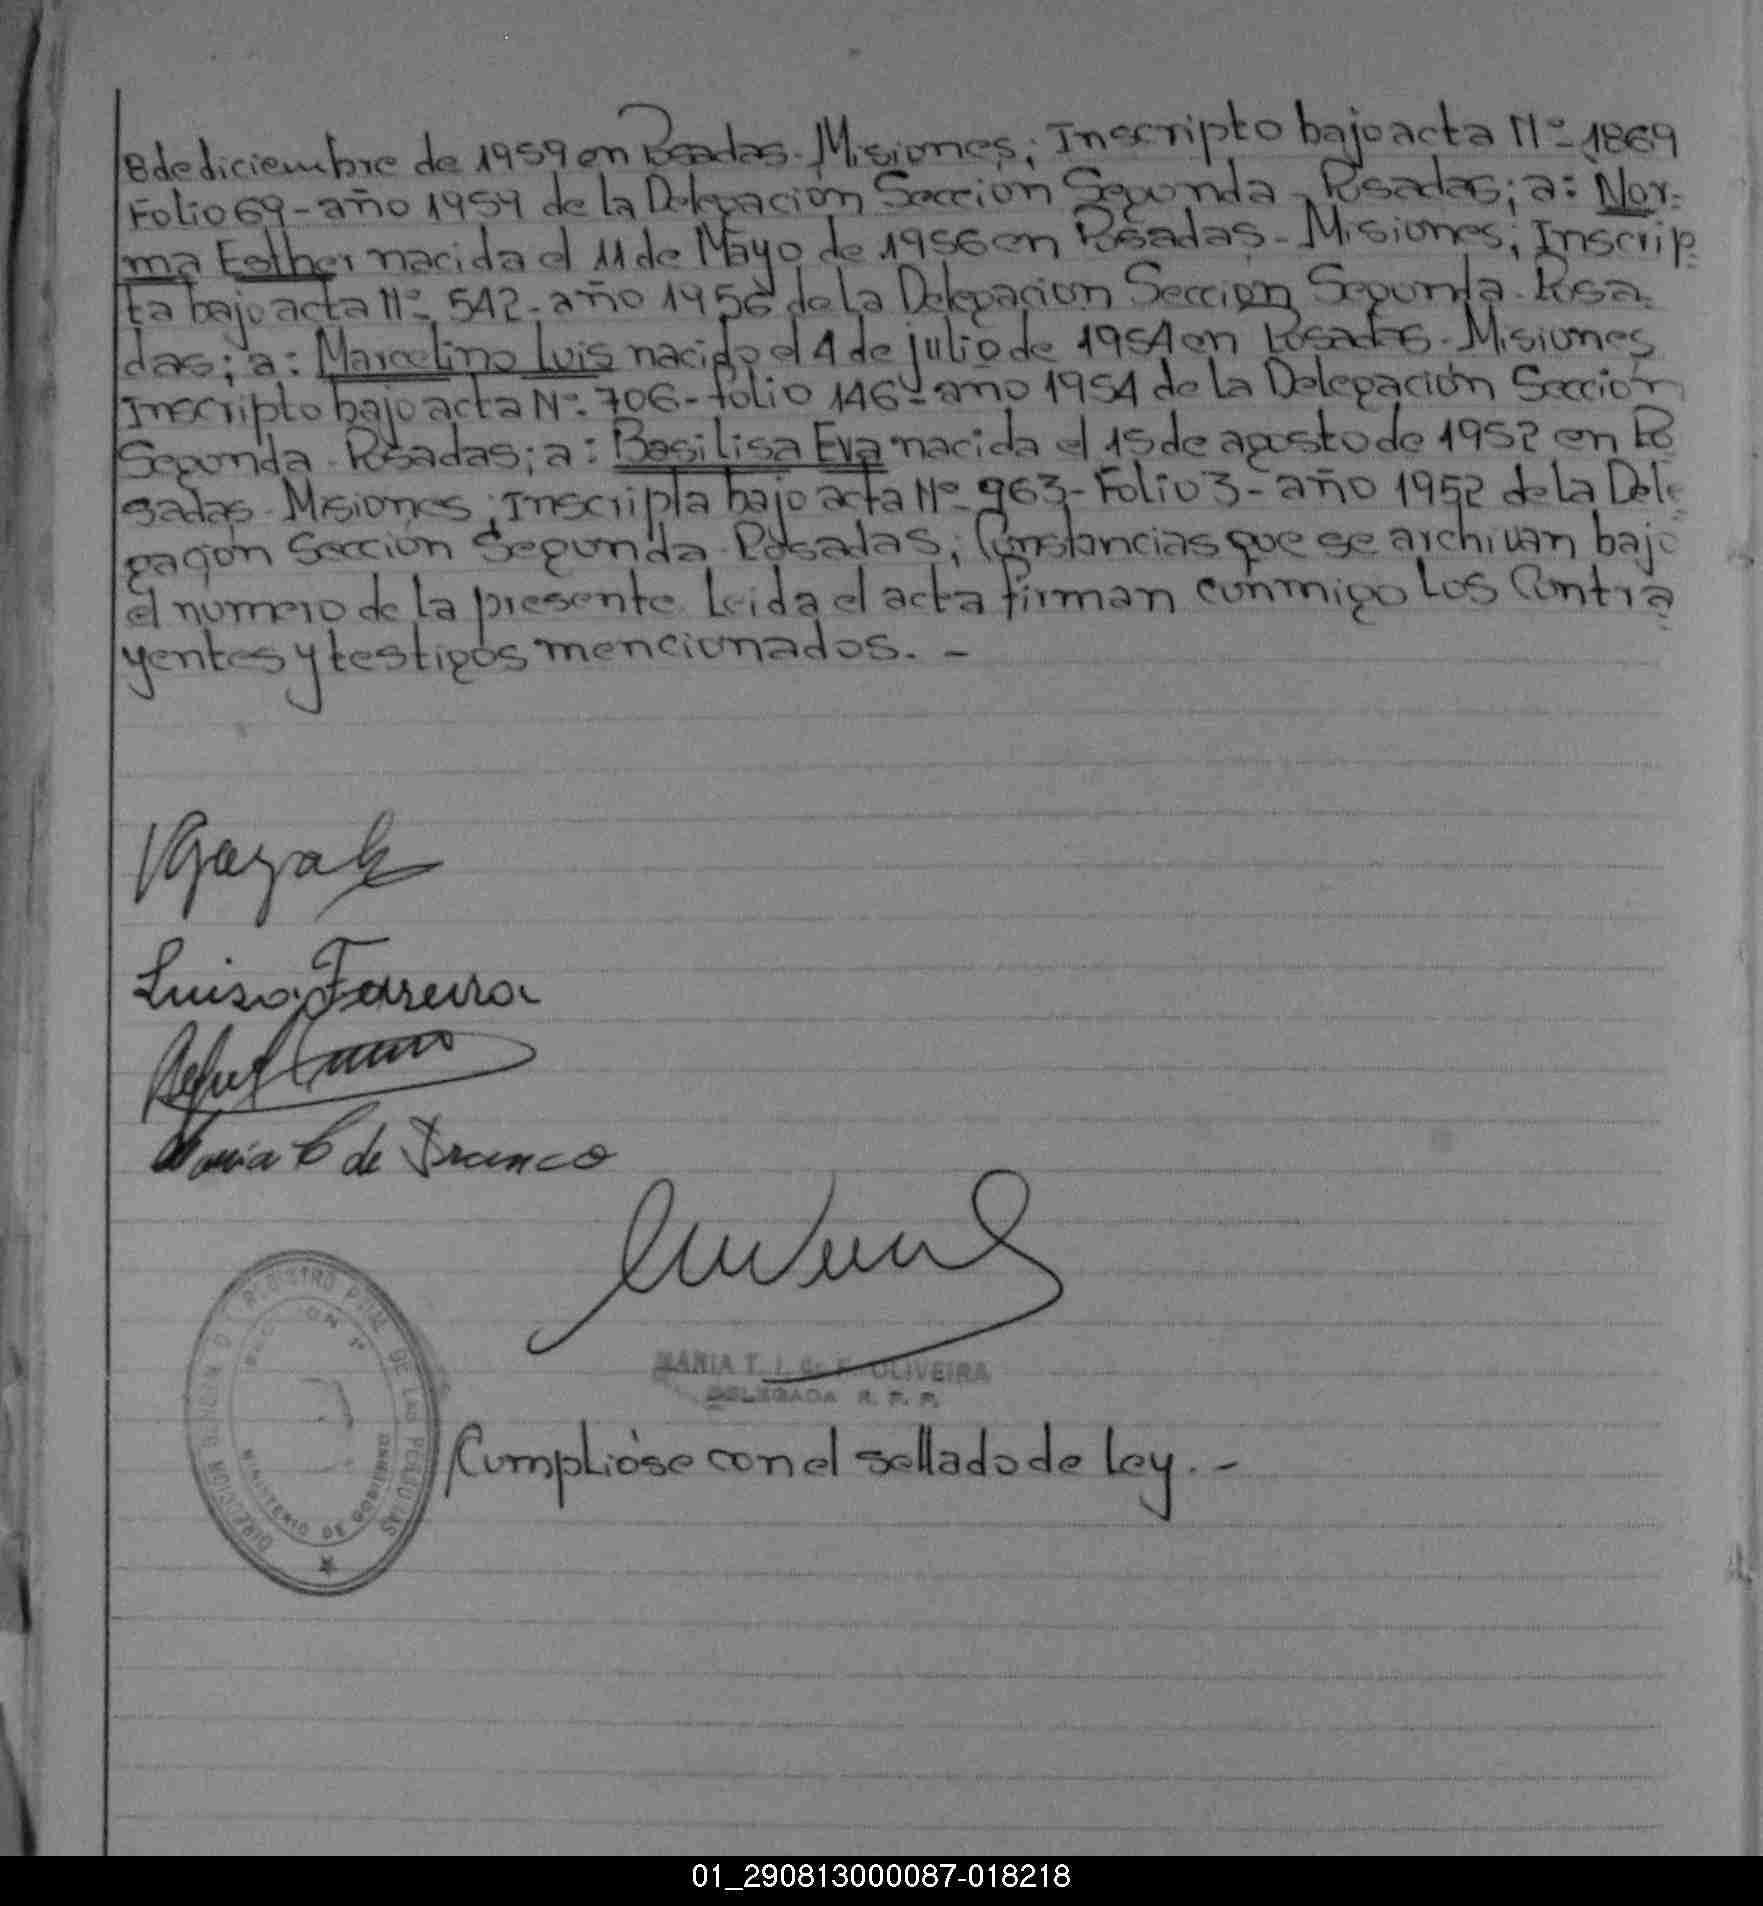 8 de diciembre de 1959 en Posadas - Misiones; Inscripto bajo acta Nº 1869
Folio 69 - año 1959 de la Delegación Sección Segunda - Posadas; a: Nor-
ma Esther nacida el 11 de Mayo de 1956 en Posadas - Misiones; Inscrip-
ta bajo acta Nº 542 - año 1956 de la Delegacion Seccion Segunda - Posa-
das; a: Marcelino Luis nacido el 4 de julio de 1954 en Posadas - Misiones
Inscripto bajo acta Nº 706 - folio 146 - año 1954 de la Delegación Sección
Segunda - Posadas; a: Basilisa Eva nacida el 15 de agosto de 1952 en Po
sadas - Misiones; Inscripta bajo acta Nº 963 - Folio 3 - año 1952 de la Dele
gación Sección Segunda - Posadas; Constancias que se archivan bajo
el numero de la presente. Leida el acta firman conmigo los Contra
yentes y testigos mencionados. -
Luisa Ferreira
Maria C de Franco
MARIA T. I. de F. OLIVEIRA
DELEGADA R. P. P.
DIRECCION REGISTRO PCIAL DE LAS PERSONAS
MINISTERIO DE GOBIERNO
Cumplióse con el sellado de ley. -
01_290813000087-018218